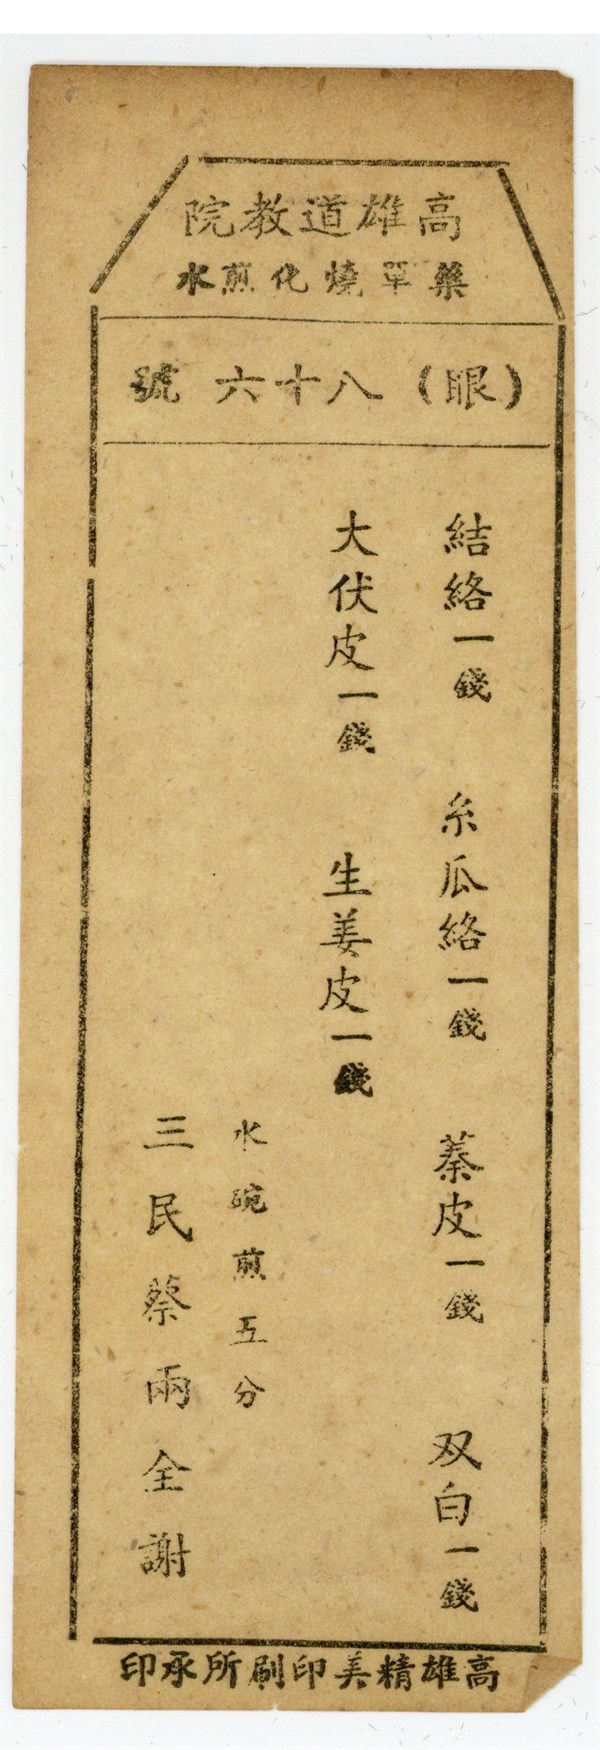 高雄道教院
藥單燒化煎水
(眼)八十六號
結絡一錢 糸瓜絡一錢 蓁皮一錢 双白一錢
大伏皮一錢 生姜皮一錢
水碗煎五分
三民蔡兩全謝
高雄精美印刷所承印